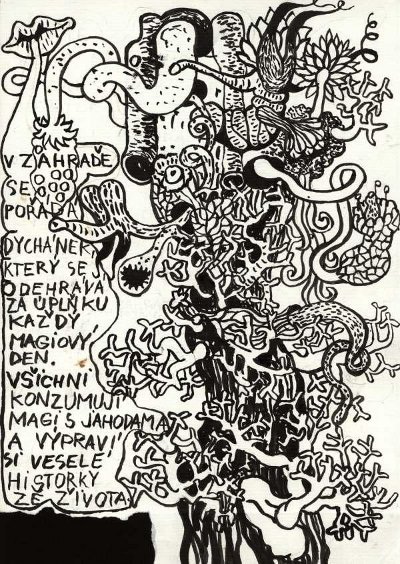 V ZAHRADĚ
SE
POŘÁDÁ
DÝCHÁNEK
KTERÝ SE
ODEHRÁVÁ
ZA ÚPLŇKU
KAŽDÝ
MAGIOVÝ
DEN.
VŠICHNI
KONZUMUJÍ
MAGI S JAHODAMA
A VYPRAVÍ
SI VESELÉ
HISTORKY
ZE ŽIVOTA